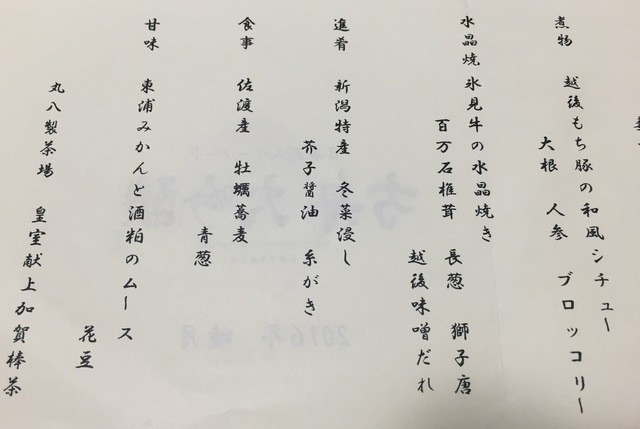 煮物　越後もち豚の和風シチュー
大根　人参　ブロッコリー
水晶焼　氷見牛の水晶焼き　長葱　獅子唐
百万石椎茸　越後味噌だれ
進肴　新潟特産　冬菜浸し
芥子醤油　糸がき
食事　佐渡産　牡蠣蕎麦
青葱
甘味　東浦みかんと酒粕のムース
花豆
丸八製茶場　皇室献上加賀棒茶
2016年 睦月